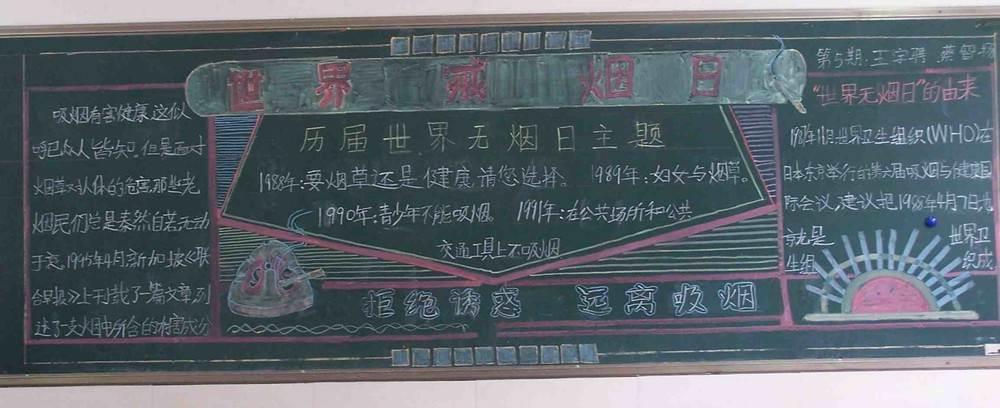 世界戒烟日
第5期:王字骋
吸烟有害健康,这似
乎已众人皆知。但是面对
烟草对人体的危害,那些老
烟民们总是泰然自若,无动
于衷。1995年4月新加坡《联
合早报》上刊载了一篇文章,列
述了一支烟中所含的有害成分
历届世界无烟日主题
1988年:要烟草还是健康,请您选择。 1989年:妇女与烟草。
1990年:青少年不能吸烟。 1991年:在公共场所和公共
交通工具上不吸烟
拒绝诱惑 远离吸烟
"世界无烟日"的由来
1987年11月世界卫生组织(WHO)在
日本东京举行的第六届吸烟与健康国
际会议,建议把1988年4月7日也
就是 世界卫
生组 织成